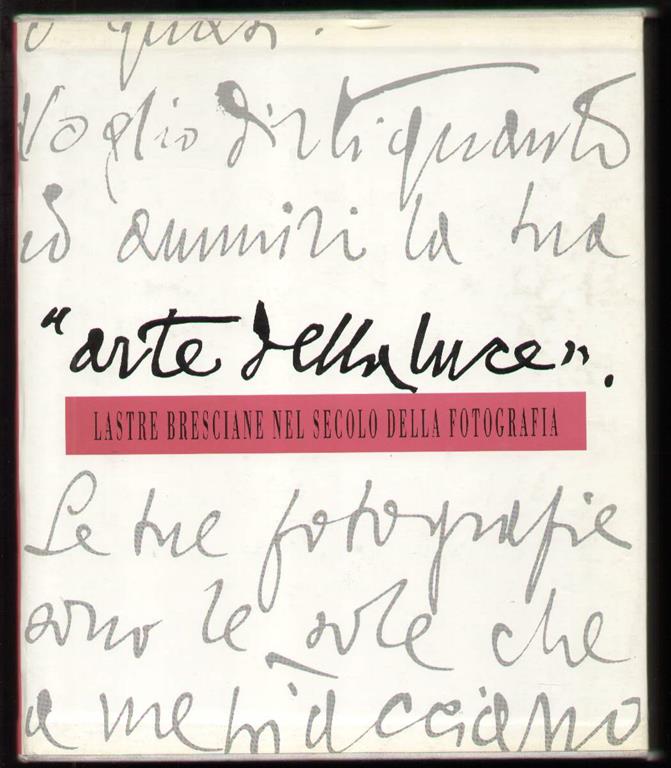 o quasi.
Voglio dirti quanto
ed ammiri la tua
"arte della luce".
LASTRE BRESCIANE NEL SECOLO DELLA FOTOGRAFIA
Le tue fotografie
sono le sole che
a me piacciano